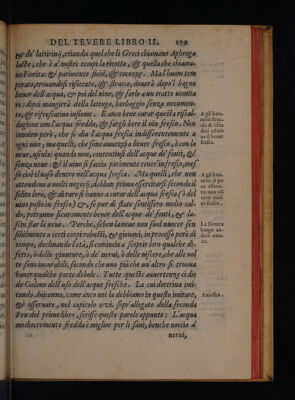 DEL TEVERE LIBRO II. 159
& de' latticinij, etiandio quel che li Greci chiamano Aphroga
lacte, che è a' nostri tempi la ricotta, & quella che chiama-
no fiorita: & parimente fichi, & cocozze. Ma l'huom tem
perato, trouandosi riscaldato, & stracco, douerà dopo i bagni
beuer dell'acqua, & poi del uino, & farsi a un tratto uomita
re: dopoi mangierà della lattuga, herbaggio senza nocumen-
to, & rifrescatiuo insieme. E anco bene curar questa riscal-
dagione con l'acqua fredda, & sarget bere il uin fresco. Non
conuien però, che si dia l'acqua fresca indifferentemente a
ogni uno; ma quelli, che sono auuezzi a beuer fresco, ò con la
neue, usinla: quando non, contentinsi dell'acque de' fonti, &
senza neue: & il uino si faccia parimente tener in fresco, mes
so cioè il uaso dentro nell'acqua fresca. Ma quelli, che non
attendono a molti negocij, debban prima essercitarsi secondo il
solito loro, & di raro si hanno a curar dell'acqua fresca (ò del
uino posto in fresco) &, se pur di state sentissero molto cal-
do, potranno sicuramente beuer dell'acque de' fonti, & la-
sciar star la neue. Perche, se ben la neue non suol nuocer sen
sibilmente a certi corpi robusti, & giouani, in processo però di
tempo, declinando l'età, si comincia a scoprir loro qualche di-
fetto, ò delle giunture, ò de' nerui, ò delle uiscere, che alle uol
te sono incurabili, secondo che uno piu che un'altro si truoua
hauer qualche parte debole. Tutte queste auuertenze ci dà
de Galeno dell'uso dell'acqua fresche. La cui dottrina imi-
tando Auicenna, come anco noi la debbiamo in questo imitare,
& osseruare, nel capitolo xvii. sopr'allegato della seconda
Fen del primo libro, scrisse queste parole appunto: L'acqua
mediocremente fredda è miglior per li sani, benche noccia a'
nerui,
A gli huo-
mini
chi
dati
nel beuer
fresco.
A gli huo-
mini
La Neue a
lungo an-
dare
Auicenna.